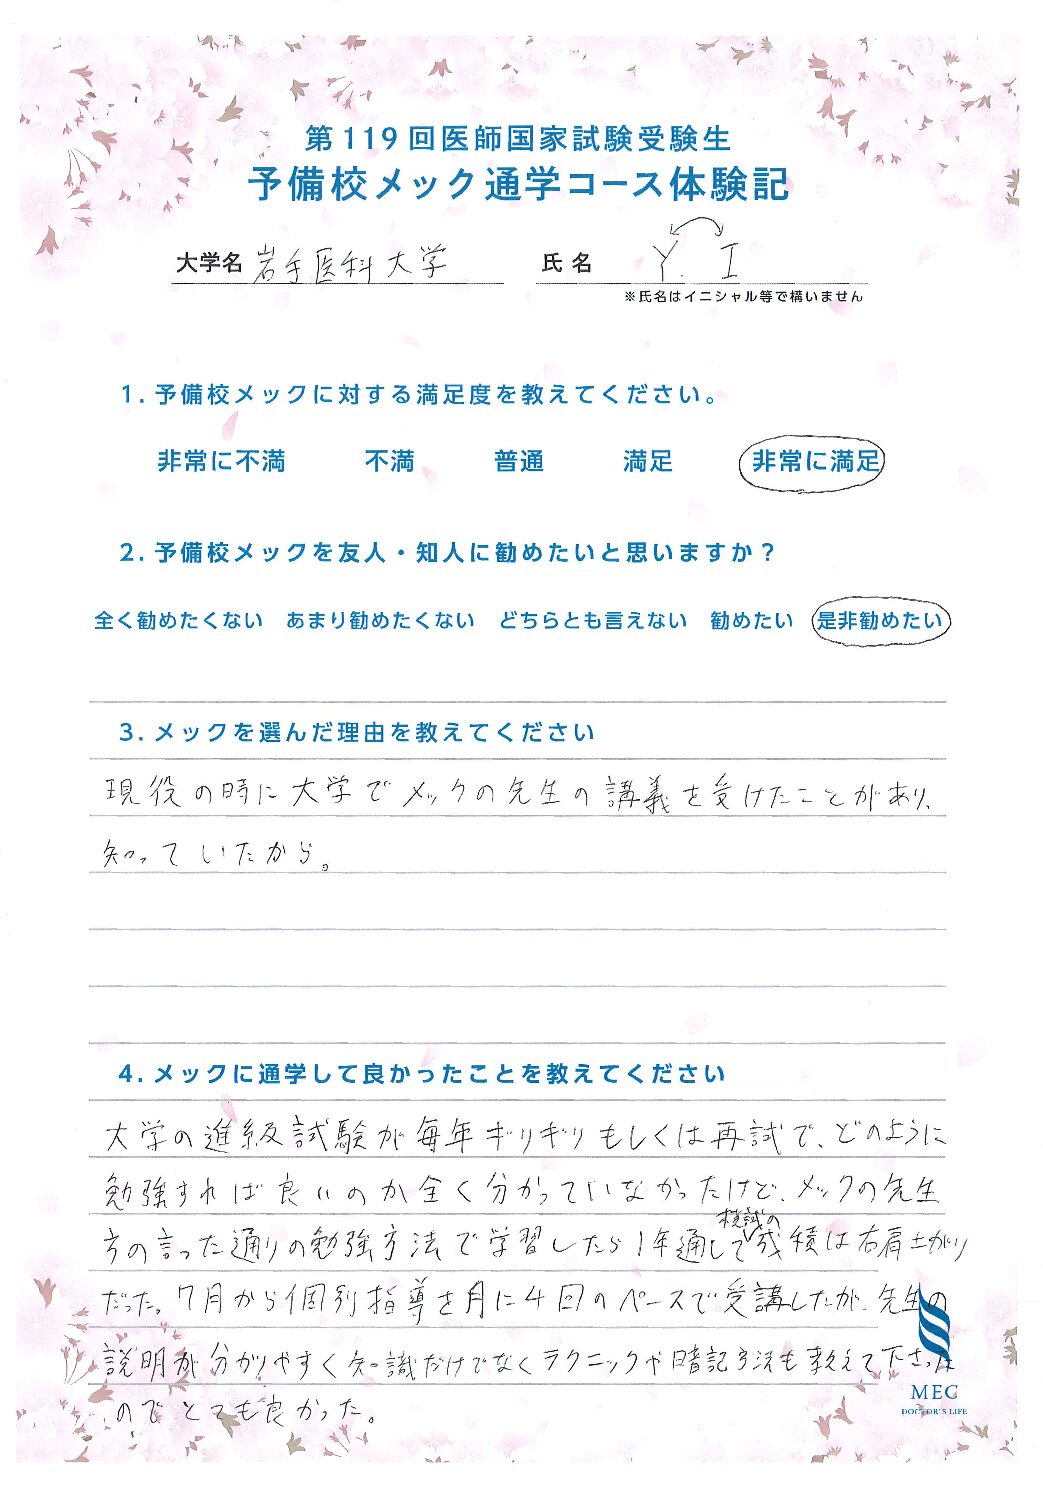 第119回医師国家試験受験生
予備校メック通学コース体験記
大学名 岩手医科大学 氏名 Y. I
※氏名はイニシャル等で構いません
1. 予備校メックに対する満足度を教えてください。
非常に不満 不満 普通 満足 非常に満足
2. 予備校メックを友人・知人に勧めたいと思いますか？
全く勧めたくない あまり勧めたくない どちらとも言えない 勧めたい 是非勧めたい
3. メックを選んだ理由を教えてください
現役の時に大学でメックの先生の講義を受けたことがあり、
知っていたから。
4. メックに通学して良かったことを教えてください
大学の進級試験が毎年ギリギリもしくは再試で、どのように
勉強すれば良いのか全く分かっていなかったけど、メックの先生
方の言った通りの勉強方法で学習したら1年通して模試の成績は右肩上がり
だった。7月から個別指導を月に4回のペースで受講したが、先生の
説明が分かりやすく知識だけでなくテクニックや暗記方法も教えて下さった
のでとても良かった。
MEC
DOCTOR'S LIFE